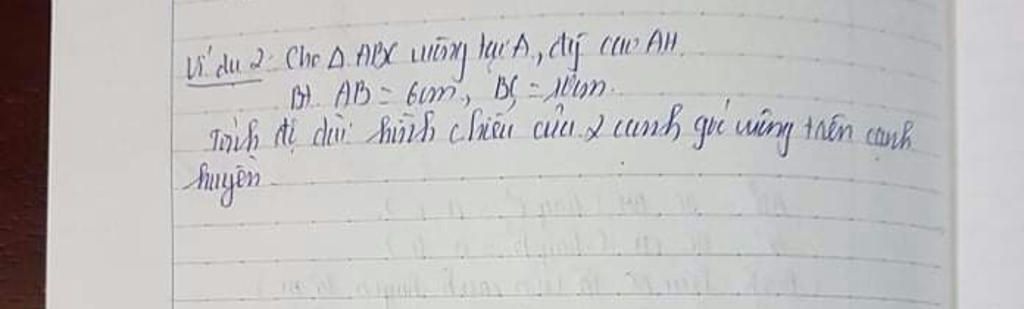 Ví dụ 2: Cho Δ ABC vuông tại A, đg cao AH.
Bt AB = 6cm, BC = 10cm.
Tính độ dài hình chiếu của 2 cạnh góc vuông trên cạnh
huyền